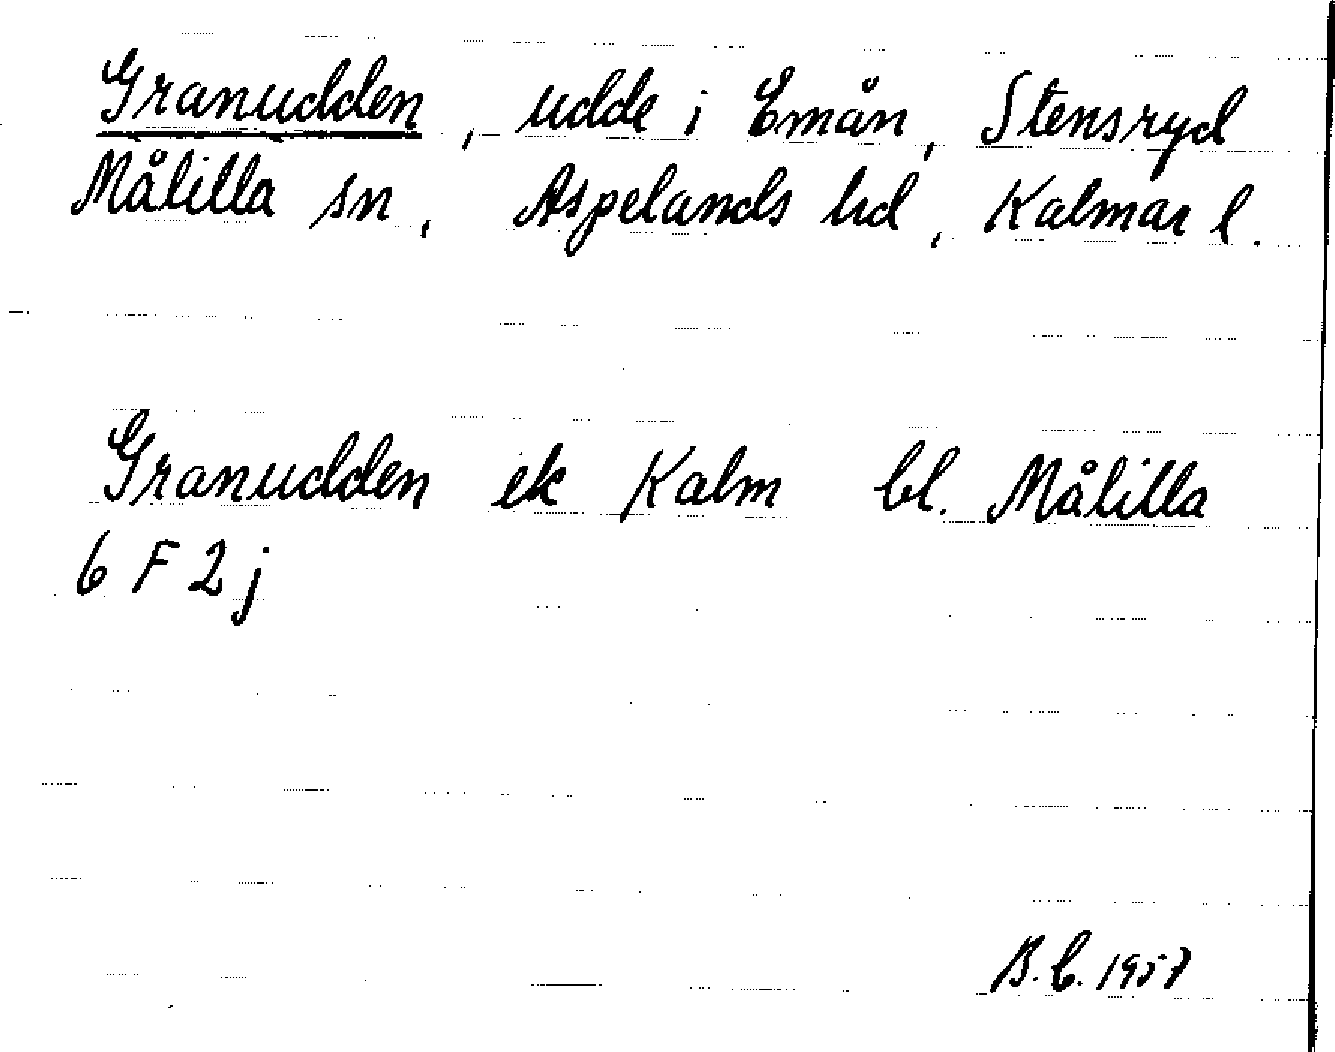 Granudden, udde i Emån, Stensryd
Målilla sn, Aspelands hd, Kalmar l.
Granudden ek Kalm bl. Målilla
6 F 2 j
B. C. 1957